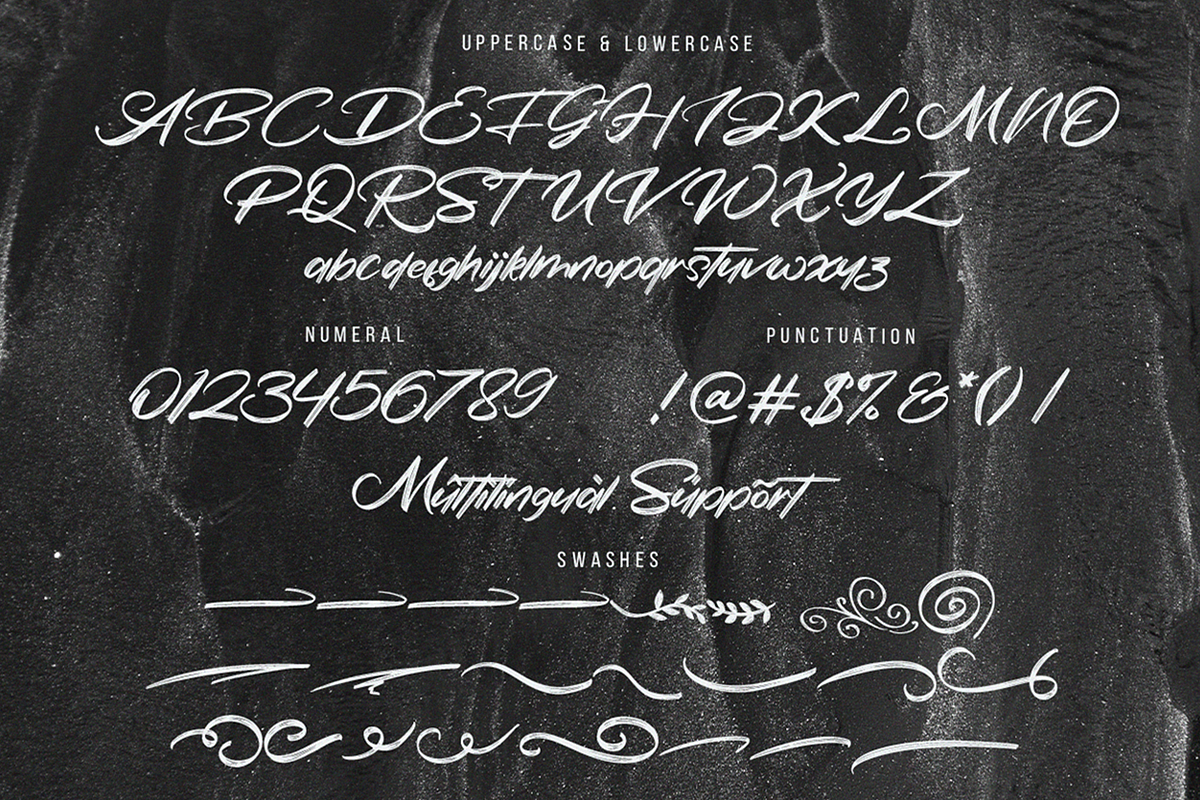 UPPERCASE & LOWERCASE
ABCDEFGHIJKLMNO
PQRSTUVWXYZ
abcdefghijklmnopqrstuvwxyz
NUMERAL
PUNCTUATION
0123456789
!@#$%&*()/
Múltîlingüàl Süppõrt
SWASHES